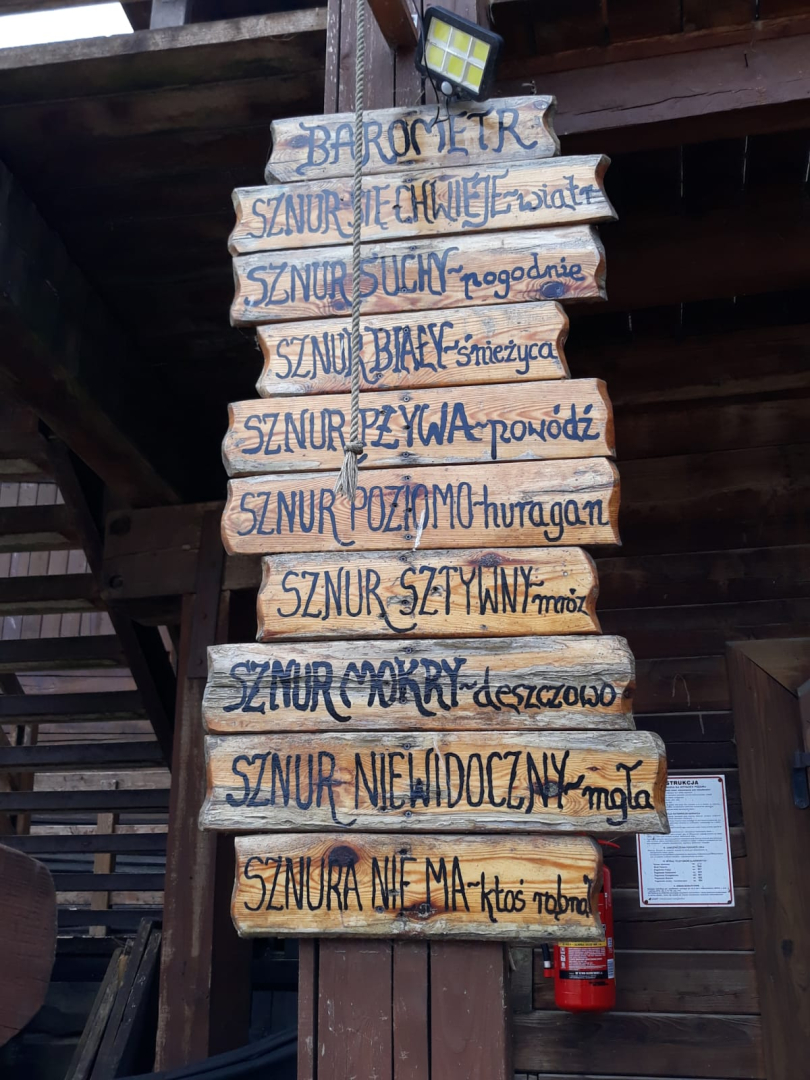 BAROMETR
SZNUR SIĘ CHWIEJE~wiatr
SZNUR SUCHY~pogodnie
SZNUR BIAŁY~śnieżyca
SZNUR PŁYWA~powódź
SZNUR POZIOMO-huragan
SZNUR SZTYWNY~mróz
SZNUR MOKRY~deszczowo
SZNUR NIEWIDOCZNY~mgła
SZNURA NIE MA~ktoś rąbnął